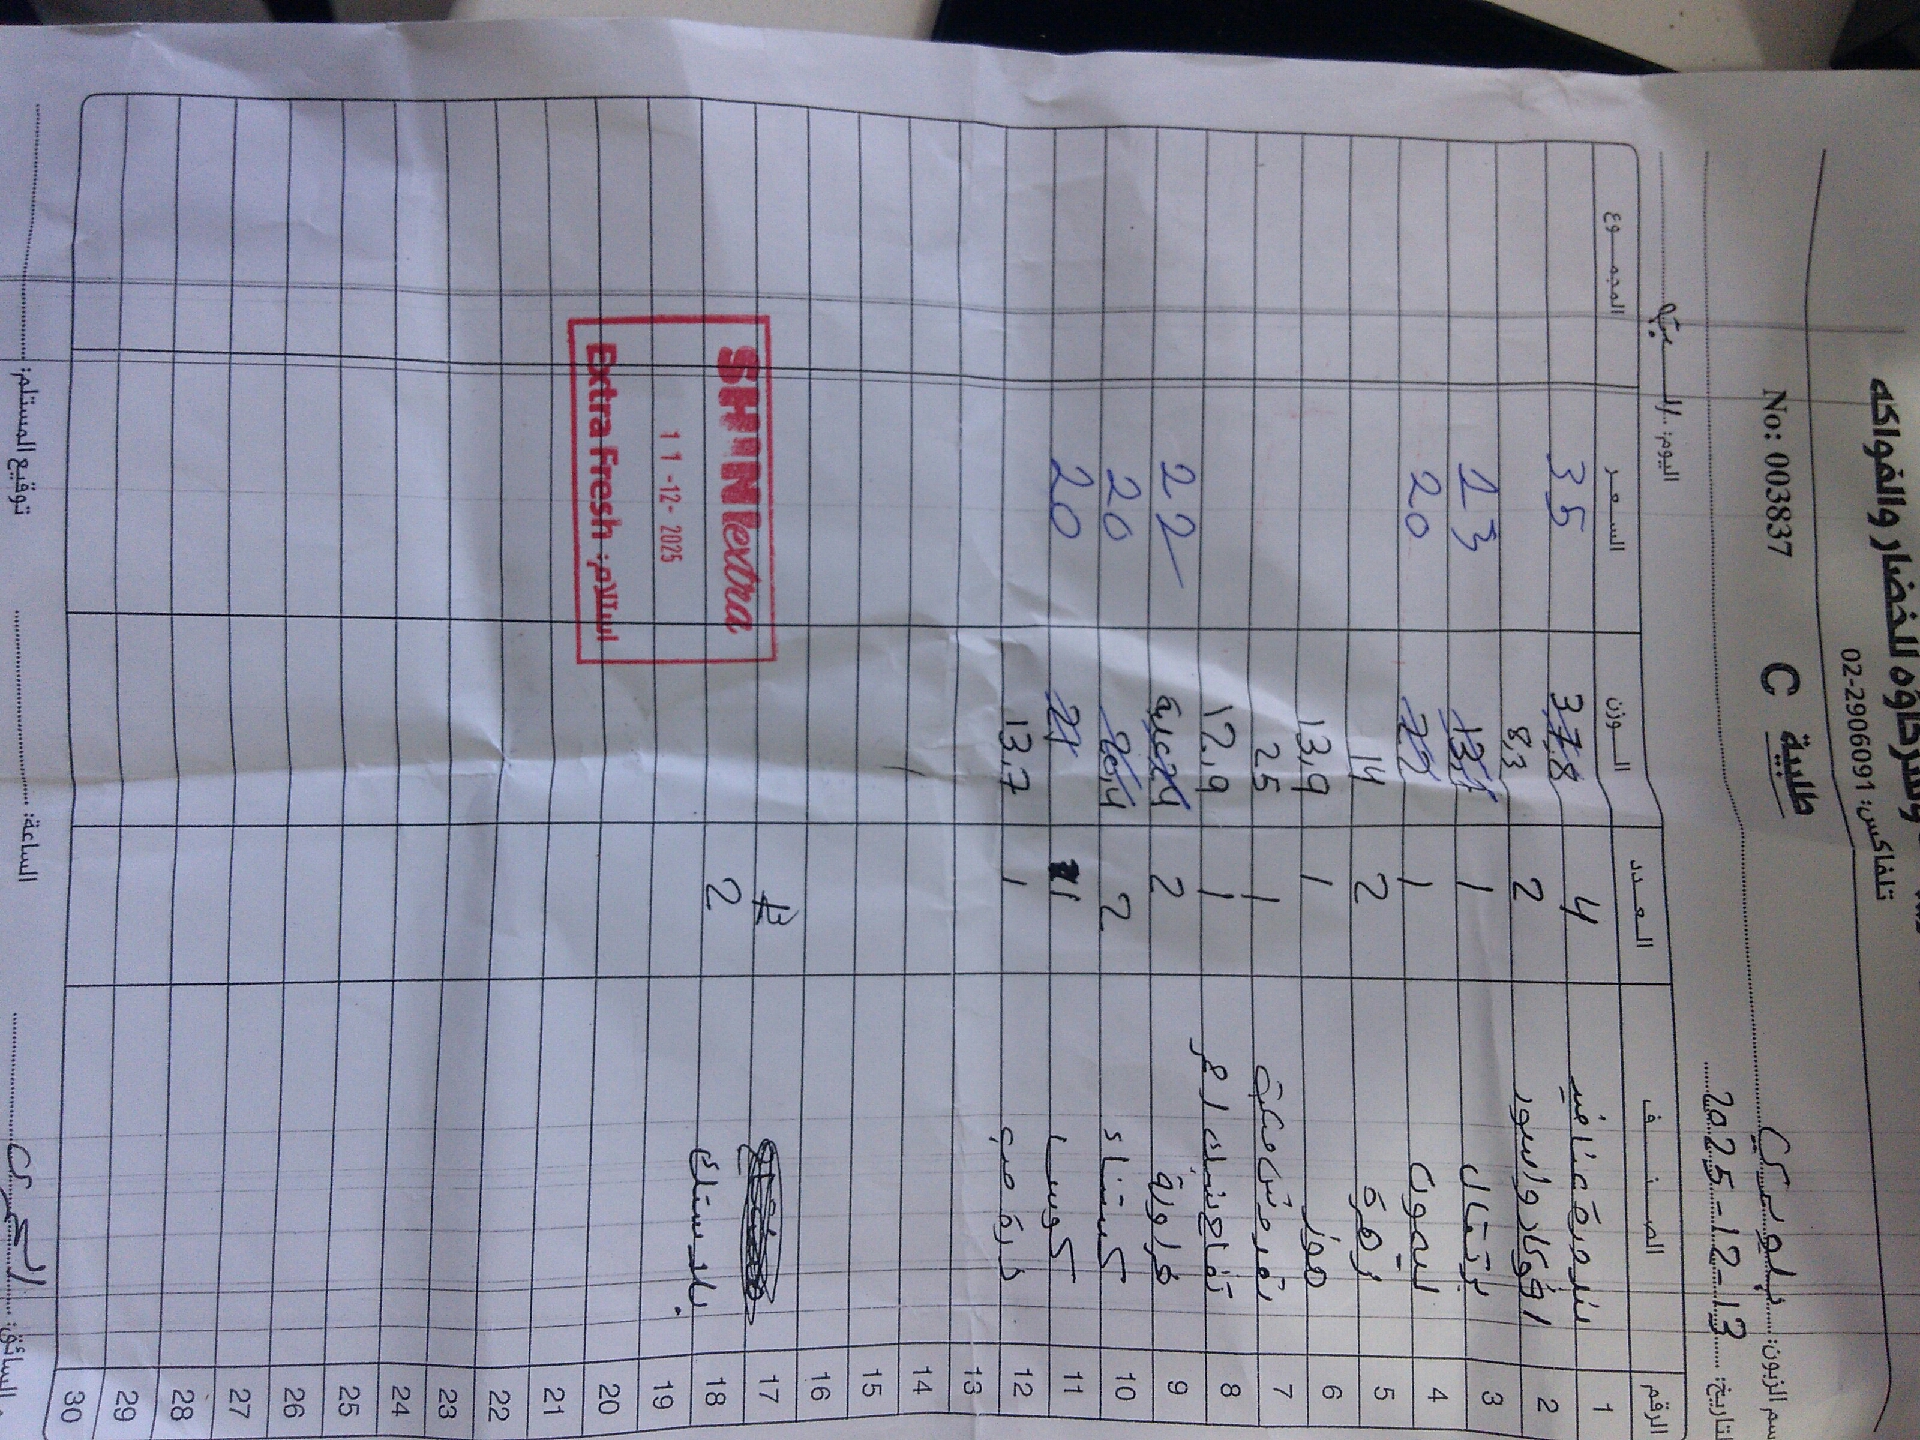 وشركاؤه للخضار والفواكه
تلفاكس: 02-2906091
No: 003837 طلبية C
اسم الزبون:
التاريخ: 2025-12-13 اليوم: السبت
الرقم الصنف العدد الوزن السعر المجموع
1 بندورة عناقيد 4 37,8 35
2 افوكادو اسود 2 8,3
3 برتقال 1 13,7 23
4 ليمون 1 22 20
5 زهرة 2 14
6 موز 1 13,9
7 1 25
8 1 12,9
9 فراولة 2 24 علبة 22
10 كستناء 2 20,4 20
11 1 21 20
12 1 13,7
13
14
15
16
17
18 2
19
20
21
22
23
24
25
26
27
28
29
30
SHINI extra
11-12-2025
استلام: Extra Fresh
السائق: الساعة: توقيع المستلم: